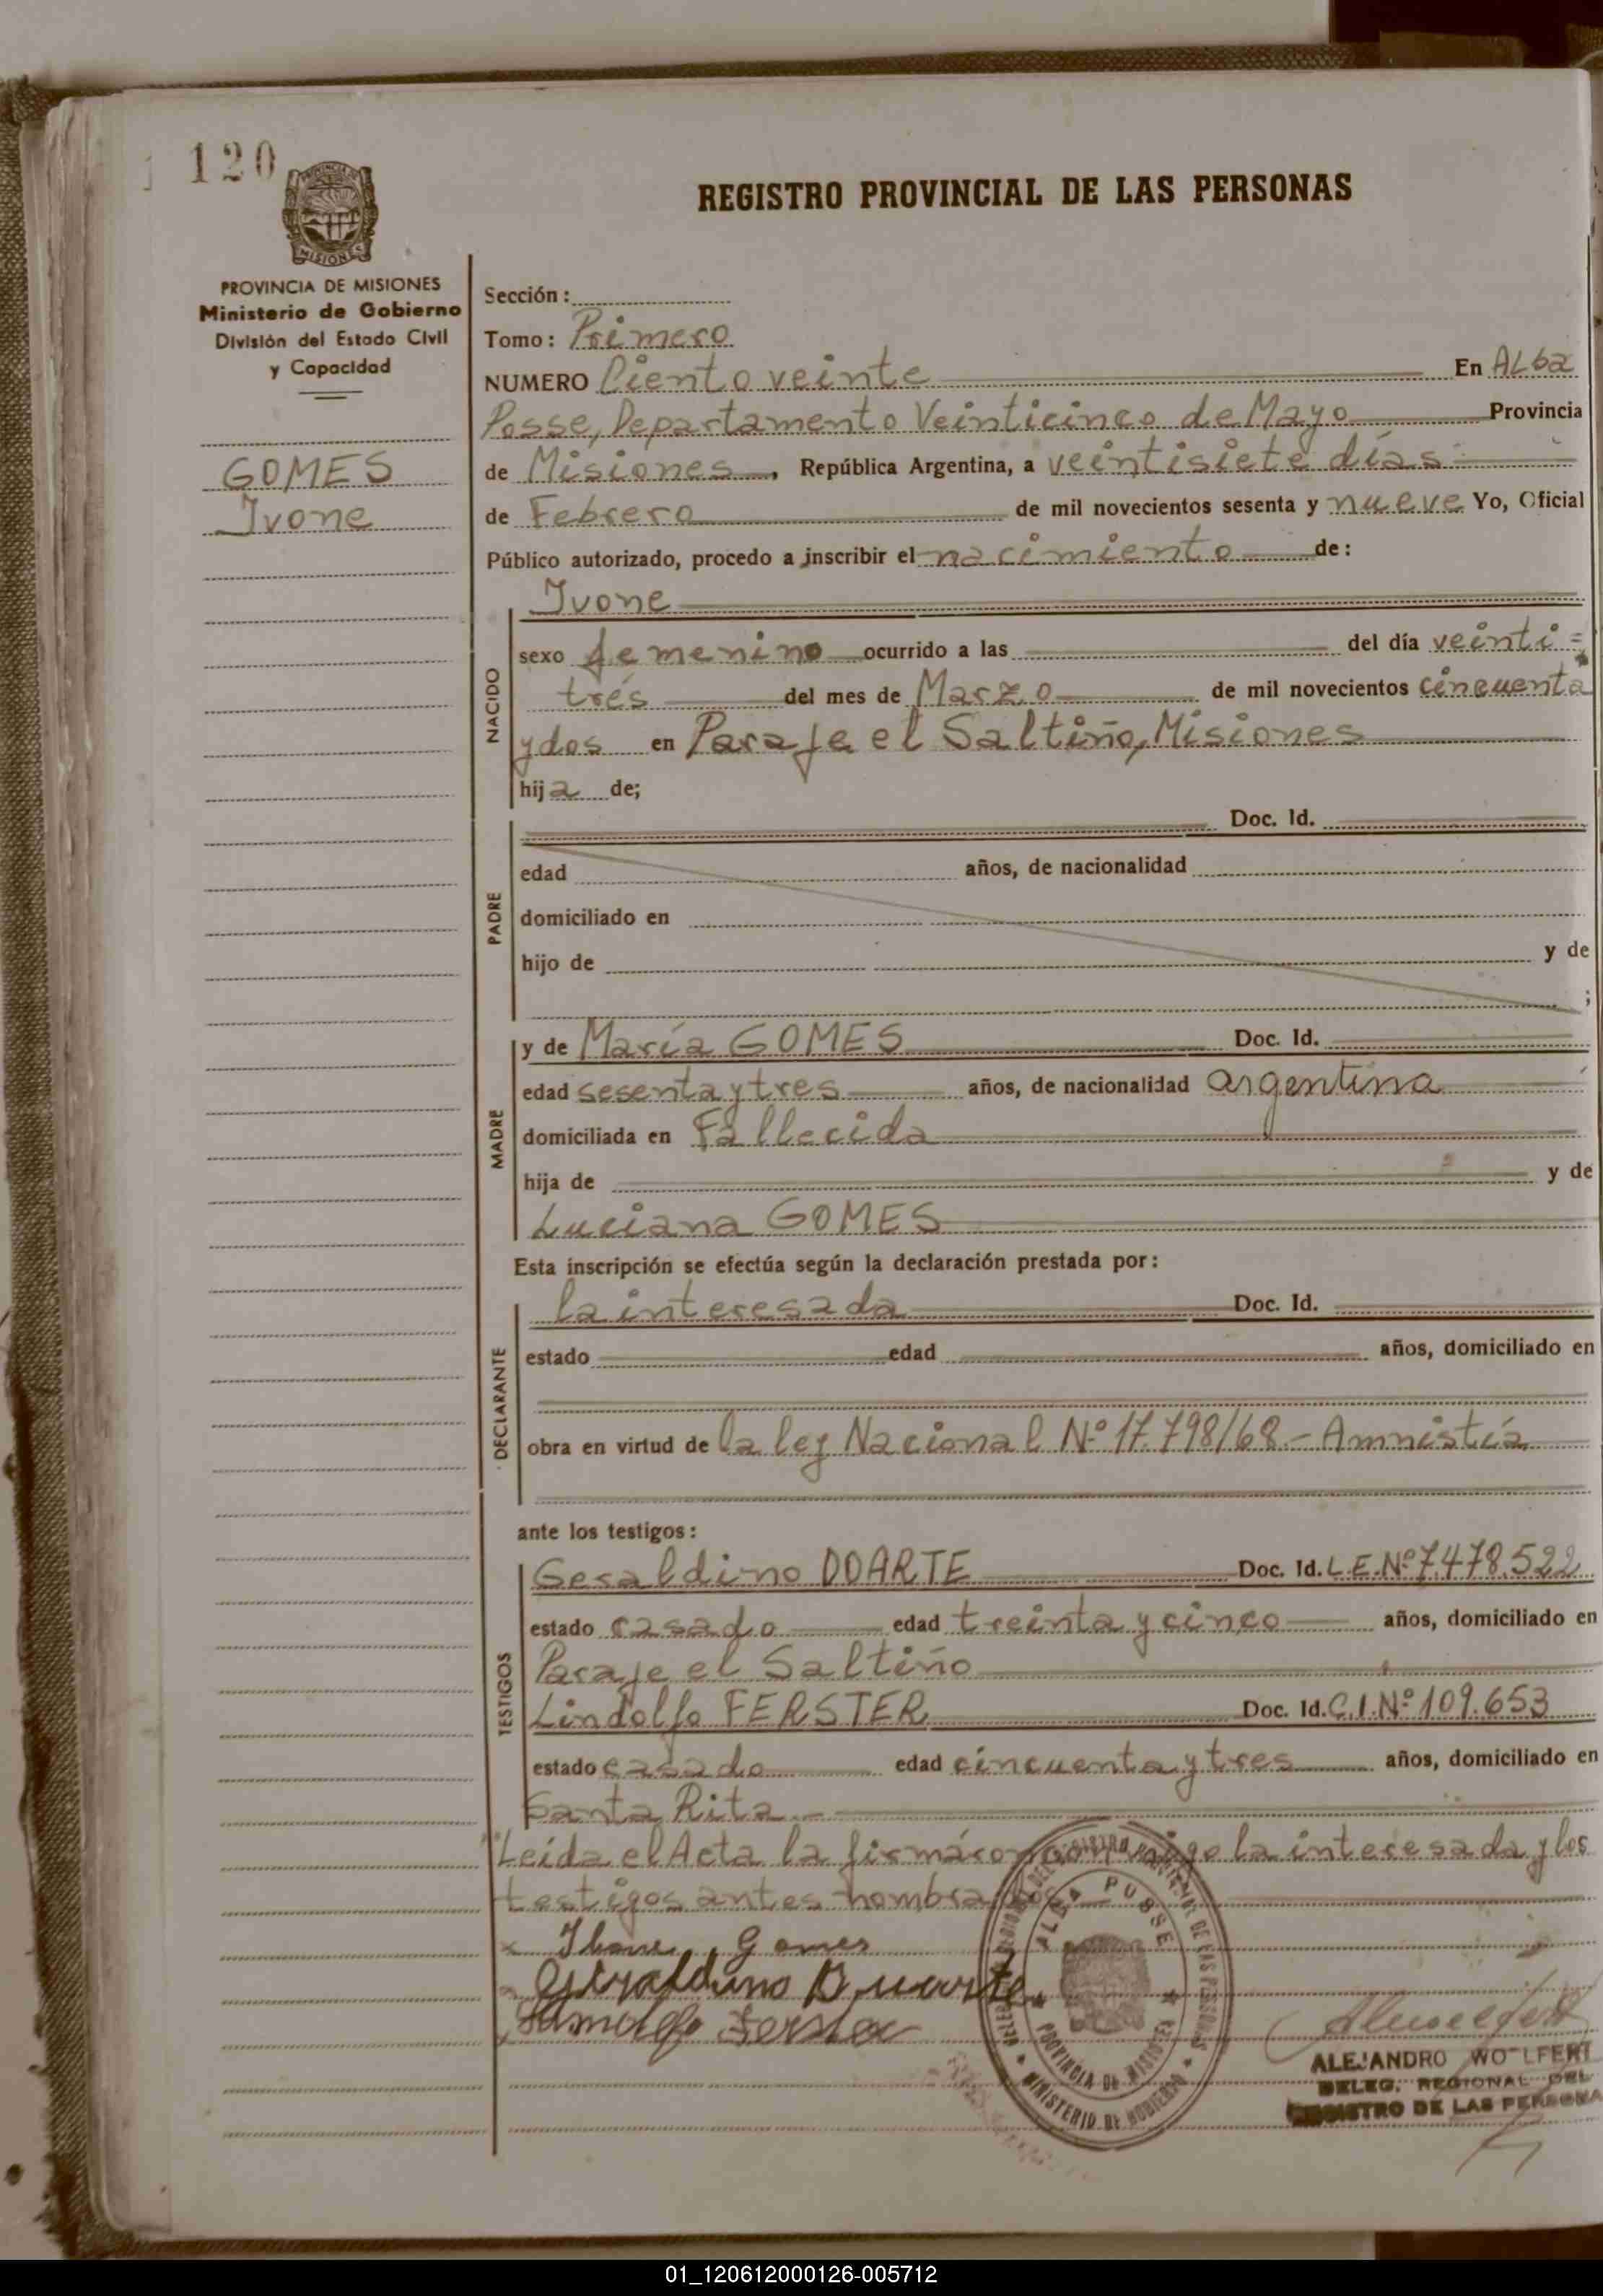 120
PROVINCIA DE MISIONES
Ministerio de Gobierno
División del Estado Civil
y Capacidad
GOMES
Ivone
REGISTRO PROVINCIAL DE LAS PERSONAS
Sección:
Tomo: Primero
NUMERO Ciento veinte En Alba
Posse, Departamento Veinticinco de Mayo Provincia
de Misiones, República Argentina, a veintisiete días
de Febrero de mil novecientos sesenta y nueve Yo, Oficial
Público autorizado, procedo a inscribir el nacimiento de:
NACIDO
Ivone
sexo femenino ocurrido a las del día veinti=
trés del mes de Marzo de mil novecientos cincuenta
y dos en Paraje el Saltiño, Misiones
hija de;
PADRE
Doc. Id.
edad años, de nacionalidad
domiciliado en
hijo de y de
;
MADRE
y de María GOMES Doc. Id.
edad sesenta y tres años, de nacionalidad argentina
domiciliada en Fallecida
hija de y de
Luciana GOMES
Esta inscripción se efectúa según la declaración prestada por:
DECLARANTE
la interesada Doc. Id.
estado edad años, domiciliado en
obra en virtud de la ley Nacional Nº 17.798/68.- Amnistía
ante los testigos:
TESTIGOS
Geraldino DOARTE Doc. Id. L.E.Nº 7.478.522
estado casado edad treinta y cinco años, domiciliado en
Paraje el Saltiño
Lindolfo FERSTER Doc. Id. C.I.Nº 109.653
estado casado edad cincuenta y tres años, domiciliado en
Santa Rita.-
Leída el Acta la firmáron conmigo la interesada y los
testigos antes nombrados
x Ibone Gomes
Geraldino Duarte
Ferster
ALBA POSSE
PROVINCIA DE MISIONES
MINISTERIO DE GOBIERNO
ALEJANDRO WOLFERT
DELEG. REGIONAL DEL
REGISTRO DE LAS PERSONA
01_120612000126-005712